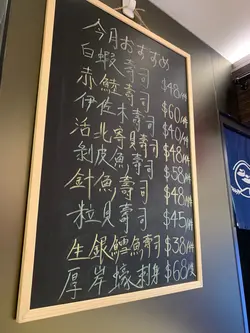 今月おすすめ
白蝦壽司 $48/件
赤鯥壽司 $60/件
伊佐木壽司 $40/件
活北寄貝壽司 $48/件
剝皮魚壽司 $58/件
針魚壽司 $48/件
粒貝壽司 $45/件
生銀鱈魚壽司 $38/件
厚岸蠔刺身 $68/隻